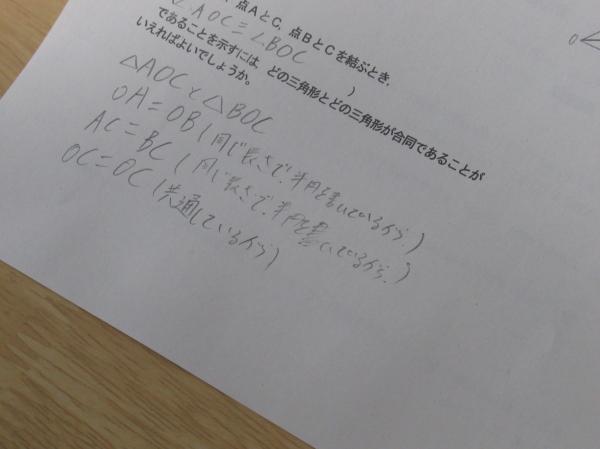 点AとC, 点BとCを結ぶとき,
∠AOC=∠BOC
であることを示すには, どの三角形とどの三角形が合同であることが
いえればよいでしょうか。 )
△AOCと△BOC
OA=OB(同じ長さで、半円を書いているから、)
AC=BC(同じ長さで、半円を書いているから、)
OC=OC(共通しているから)
O